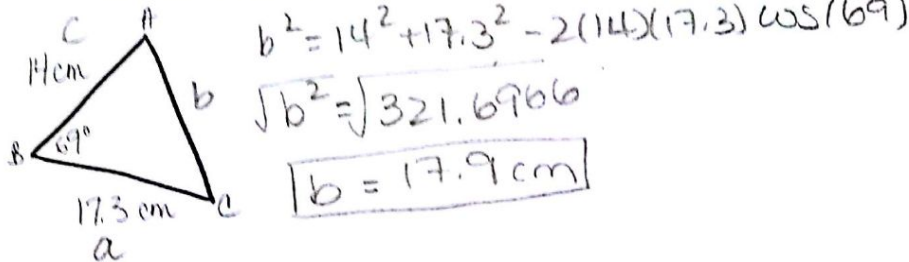 A
c
14cm
b
B
69°
17.3 cm
C
a
b² = 14² + 17.3² - 2(14)(17.3) cos(69)
√b² = √321.6966
b = 17.9 cm